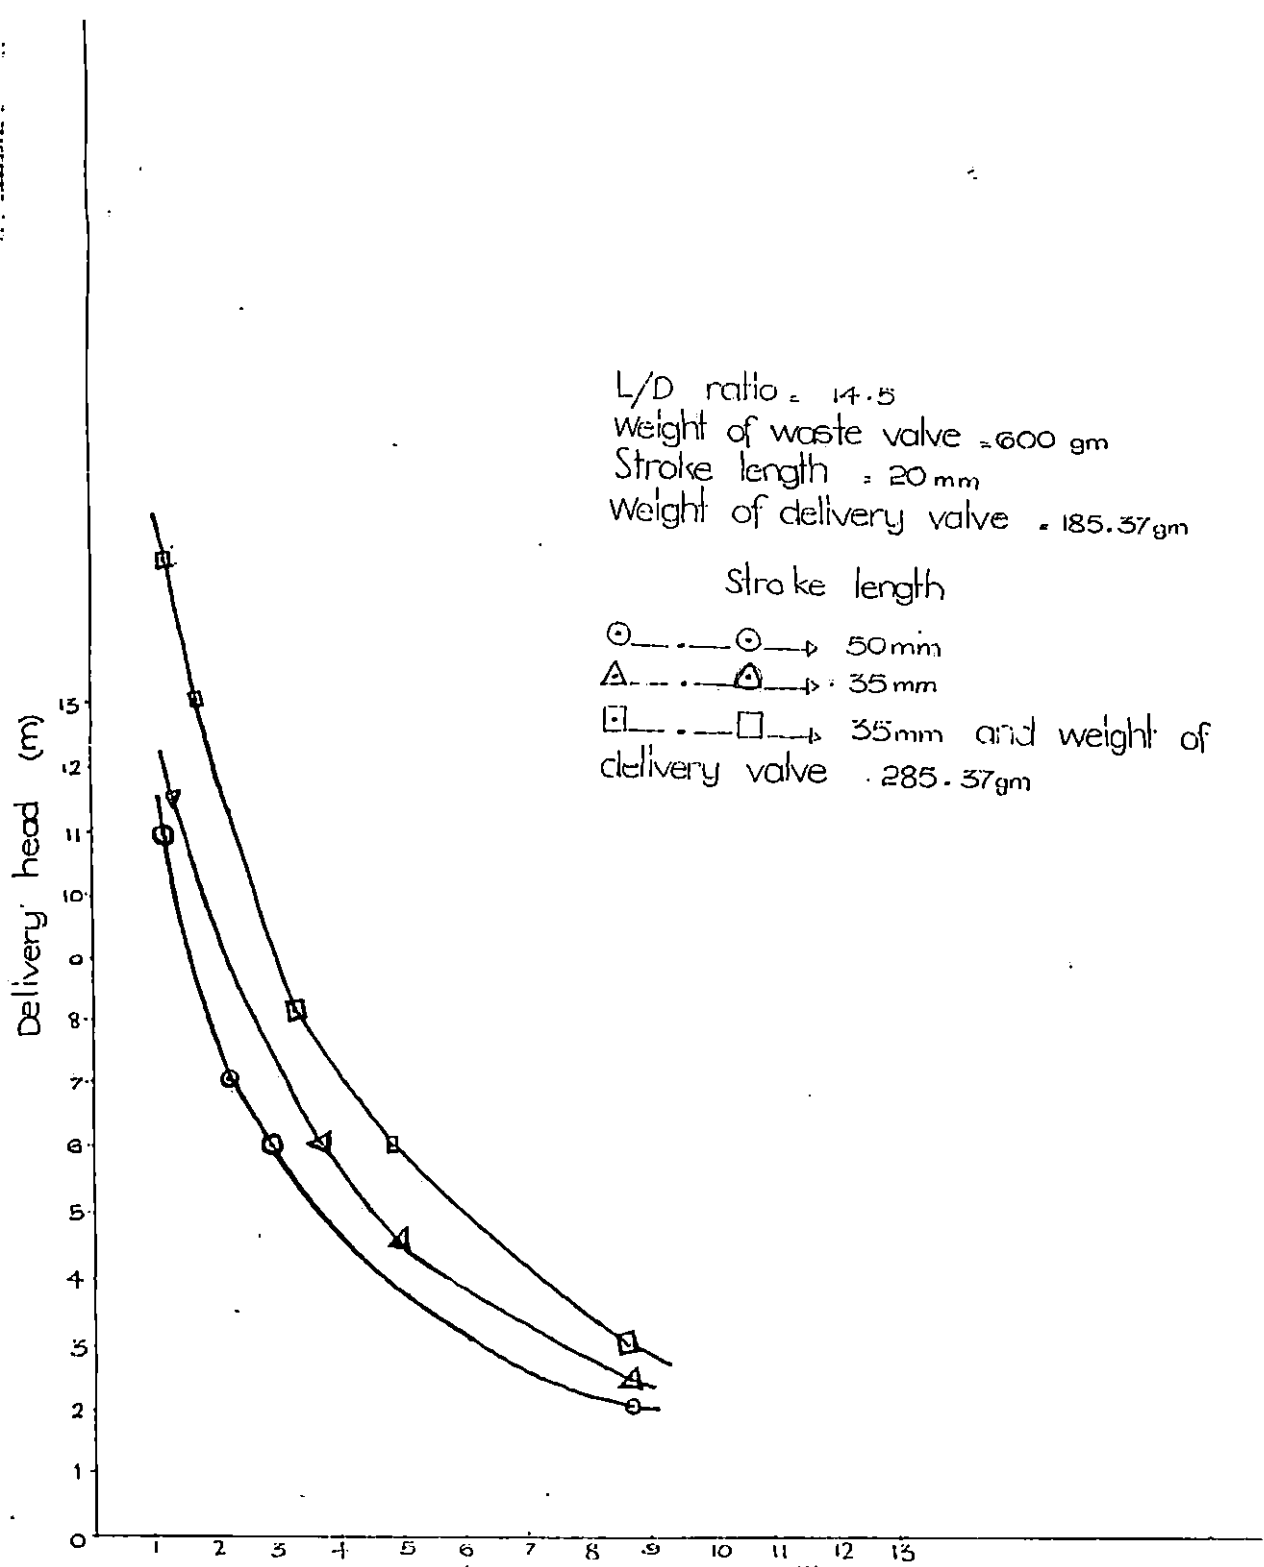 L/D ratio = 14.5
Weight of waste valve = 600 gm
Stroke length = 20 mm
Weight of delivery valve = 185.37 gm
Stroke length
50 mm
35 mm
35 mm and weight of
delivery valve . 285.37 gm
Delivery head (m)
13
12
11
10
8
7
6
5
4
3
2
1
0
1 2 3 4 5 6 7 8 9 10 11 12 13